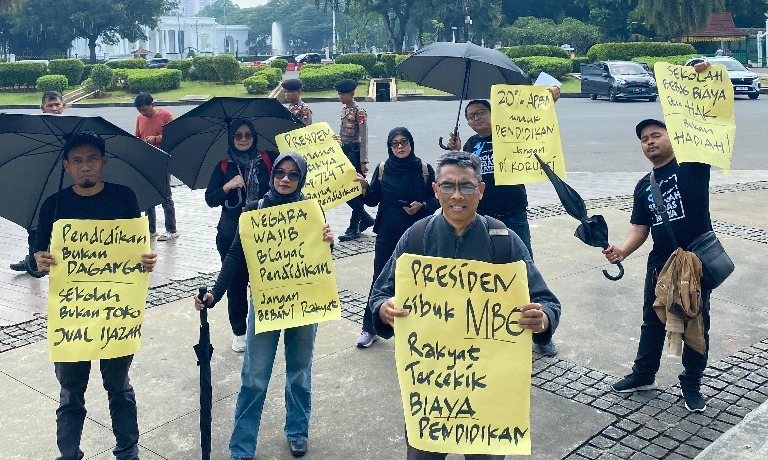 Pendidikan
BUKAN
DAGANGAN
SEKOLAH
BUKAN TOKO
JUAL IJAZAH
NEGARA
WAJIB
BIAYAI
PENDIDIKAN
JANGAN
BEBANI RAKYAT
PRESIDEN
SIBUK MBG
RAKYAT
TERCEKIK
BIAYA
PENDIDIKAN
20% APBN
UNTUK
PENDIDIKAN
JANGAN
DI KORUPSI
SEKOLAH
BEBAS BIAYA
HAK
BUKAN
HADIAH!